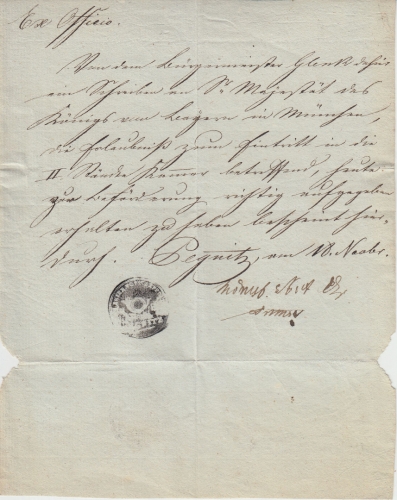 Ex Officio.
Von dem Bürgermeister Glenk dahier
ein Schreiben an Sr Majestät des
Königs von Bayern in München,
die Erlaubniß zum Eintritt in die
II Stände Kamer betreffend, heute
zur Beförderung richtig aufgegeben
erhalten zu haben bescheint hier-
durch. Pegnitz, am 18. Novbr.